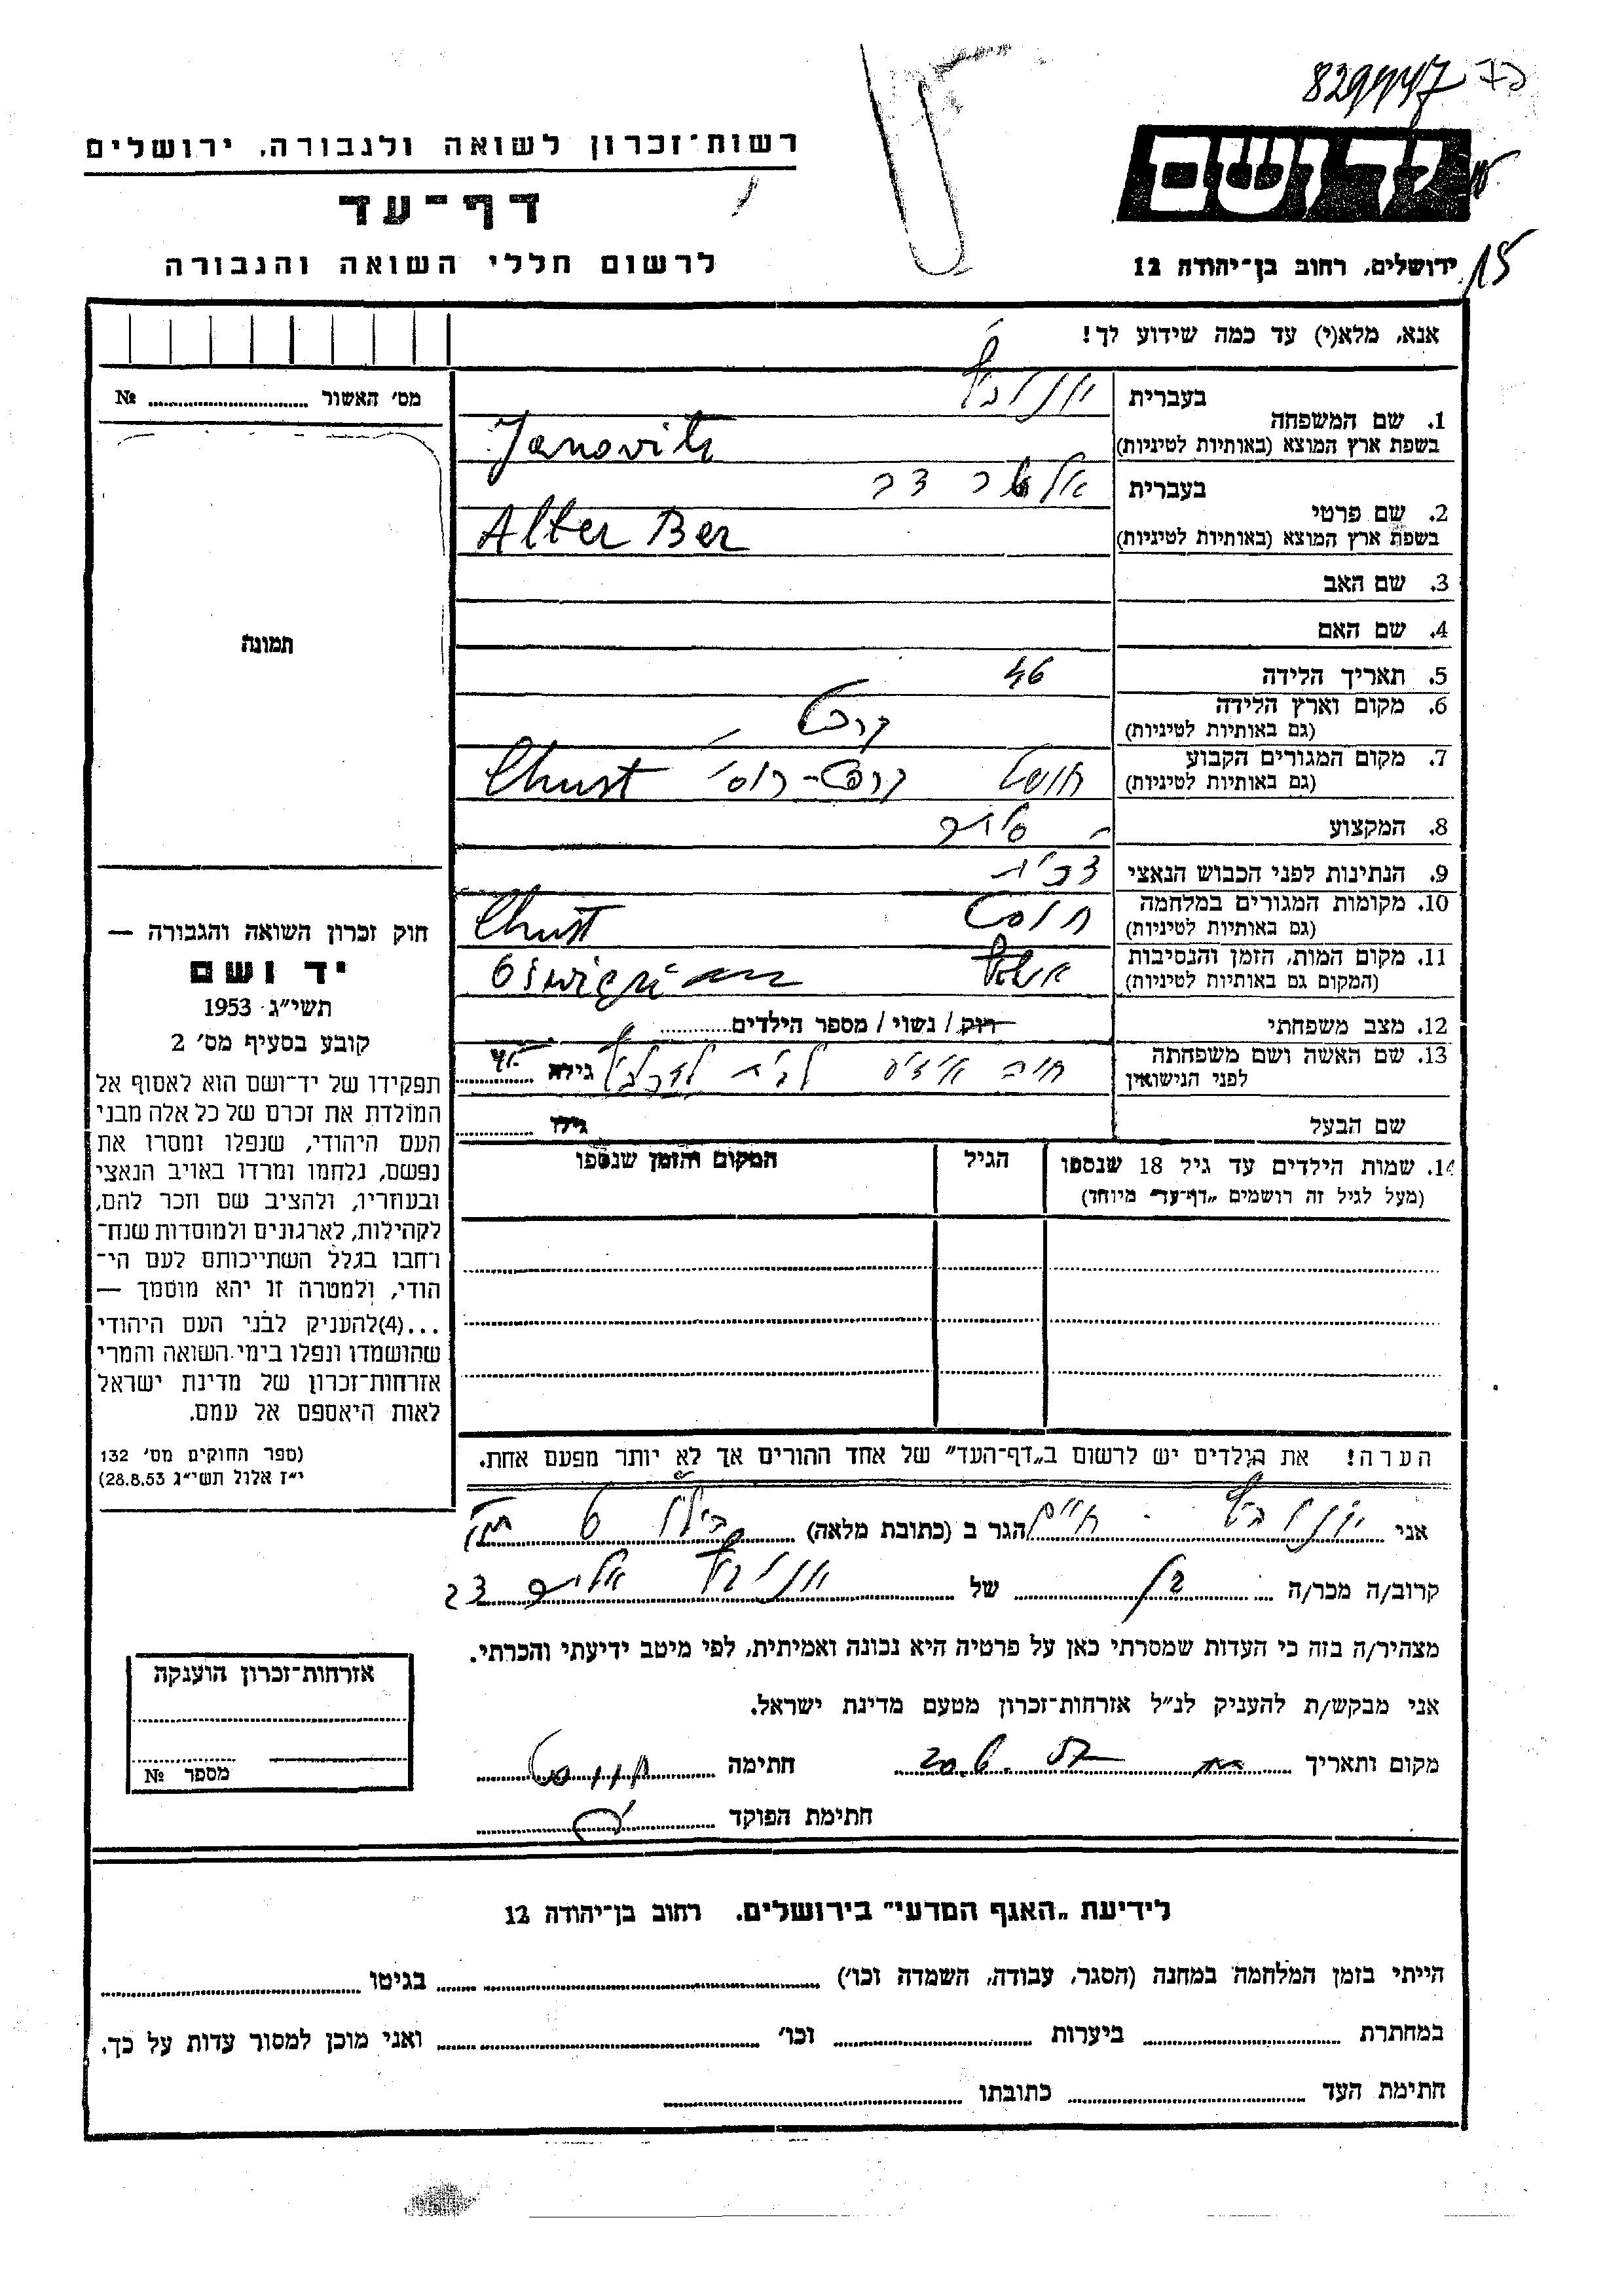 829447
רשות־זכרון לשואה ולגבורה, ירושלים
דף־עד
לרשום חללי השואה והגבורה
יד ושם
ירושלים, רחוב בן־יהודה 12
15
אנא, מלא(י) עד כמה שידוע לך!
מס׳ האשור № 
תמונה
1. שם המשפחה
בעברית ינוביץ
בשפת ארץ המוצא (באותיות לטיניות) Janovits
2. שם פרטי
בעברית אלטר בר
בשפת ארץ המוצא (באותיות לטיניות) Alter Ber
3. שם האב
4. שם האם
5. תאריך הלידה 46
6. מקום וארץ הלידה
(גם באותיות לטיניות)
7. מקום המגורים הקבוע
(גם באותיות לטיניות) חוסט Chust
8. המקצוע
9. הנתינות לפני הכבוש הנאצי
10. מקומות המגורים במלחמה
(גם באותיות לטיניות) חוסט Chust
11. מקום המות, הזמן והנסיבות
(המקום גם באותיות לטיניות)
12. מצב משפחתי רוק / נשוי / מספר הילדים
13. שם האשה ושם משפחתה
לפני הנישואין חיה לבית גילה
שם הבעל גילו
14. שמות הילדים עד גיל 18 שנספו
(מעל לגיל זה רושמים „דף־עד״ מיוחד)
הגיל
המקום והזמן שנספו
חוק זכרון השואה והגבורה —
יד ושם
תשי״ג 1953
קובע בסעיף מס׳ 2
תפקידו של יד־ושם הוא לאסוף אל
המולדת את זכרם של כל אלה מבני
העם היהודי, שנפלו ומסרו את
נפשם, נלחמו ומרדו באויב הנאצי
ובעוזריו, ולהציב שם וזכר להם,
לקהילות, לארגונים ולמוסדות שנח־
רחבו בגלל השתייכותם לעם הי־
הודי, ולמטרה זו יהא מוסמך —
...(4)להעניק לבני העם היהודי
שהושמדו ונפלו בימי השואה והמרי
אזרחות־זכרון של מדינת ישראל
לאות היאספם אל עמם.
(ספר החוקים מס׳ 132
י״ז אלול תשי״ג 28.8.53)
הערה! את הילדים יש לרשום ב„דף־העד״ של אחד ההורים אך לא יותר מפעם אחת.
אני ינוביץ חיים הגר ב (כתובת מלאה)
קרוב/ה מכר/ה בן של ינוביץ אלטר בר
מצהיר/ה בזה כי העדות שמסרתי כאן על פרטיה היא נכונה ואמיתית, לפי מיטב ידיעתי והכרתי.
אני מבקש/ת להעניק לנ״ל אזרחות־זכרון מטעם מדינת ישראל.
מקום ותאריך 20.6.57 חתימה
חתימת הפוקד
אזרחות־זכרון הוענקה
מספר №
לידיעת „האגף המדעי״ בירושלים, רחוב בן־יהודה 12
הייתי בזמן המלחמה במחנה (הסגר, עבודה, השמדה וכו׳) בגיטו
במחתרת ביערות וכו׳ ואני מוכן למסור עדות על כך.
חתימת העד כתובתו